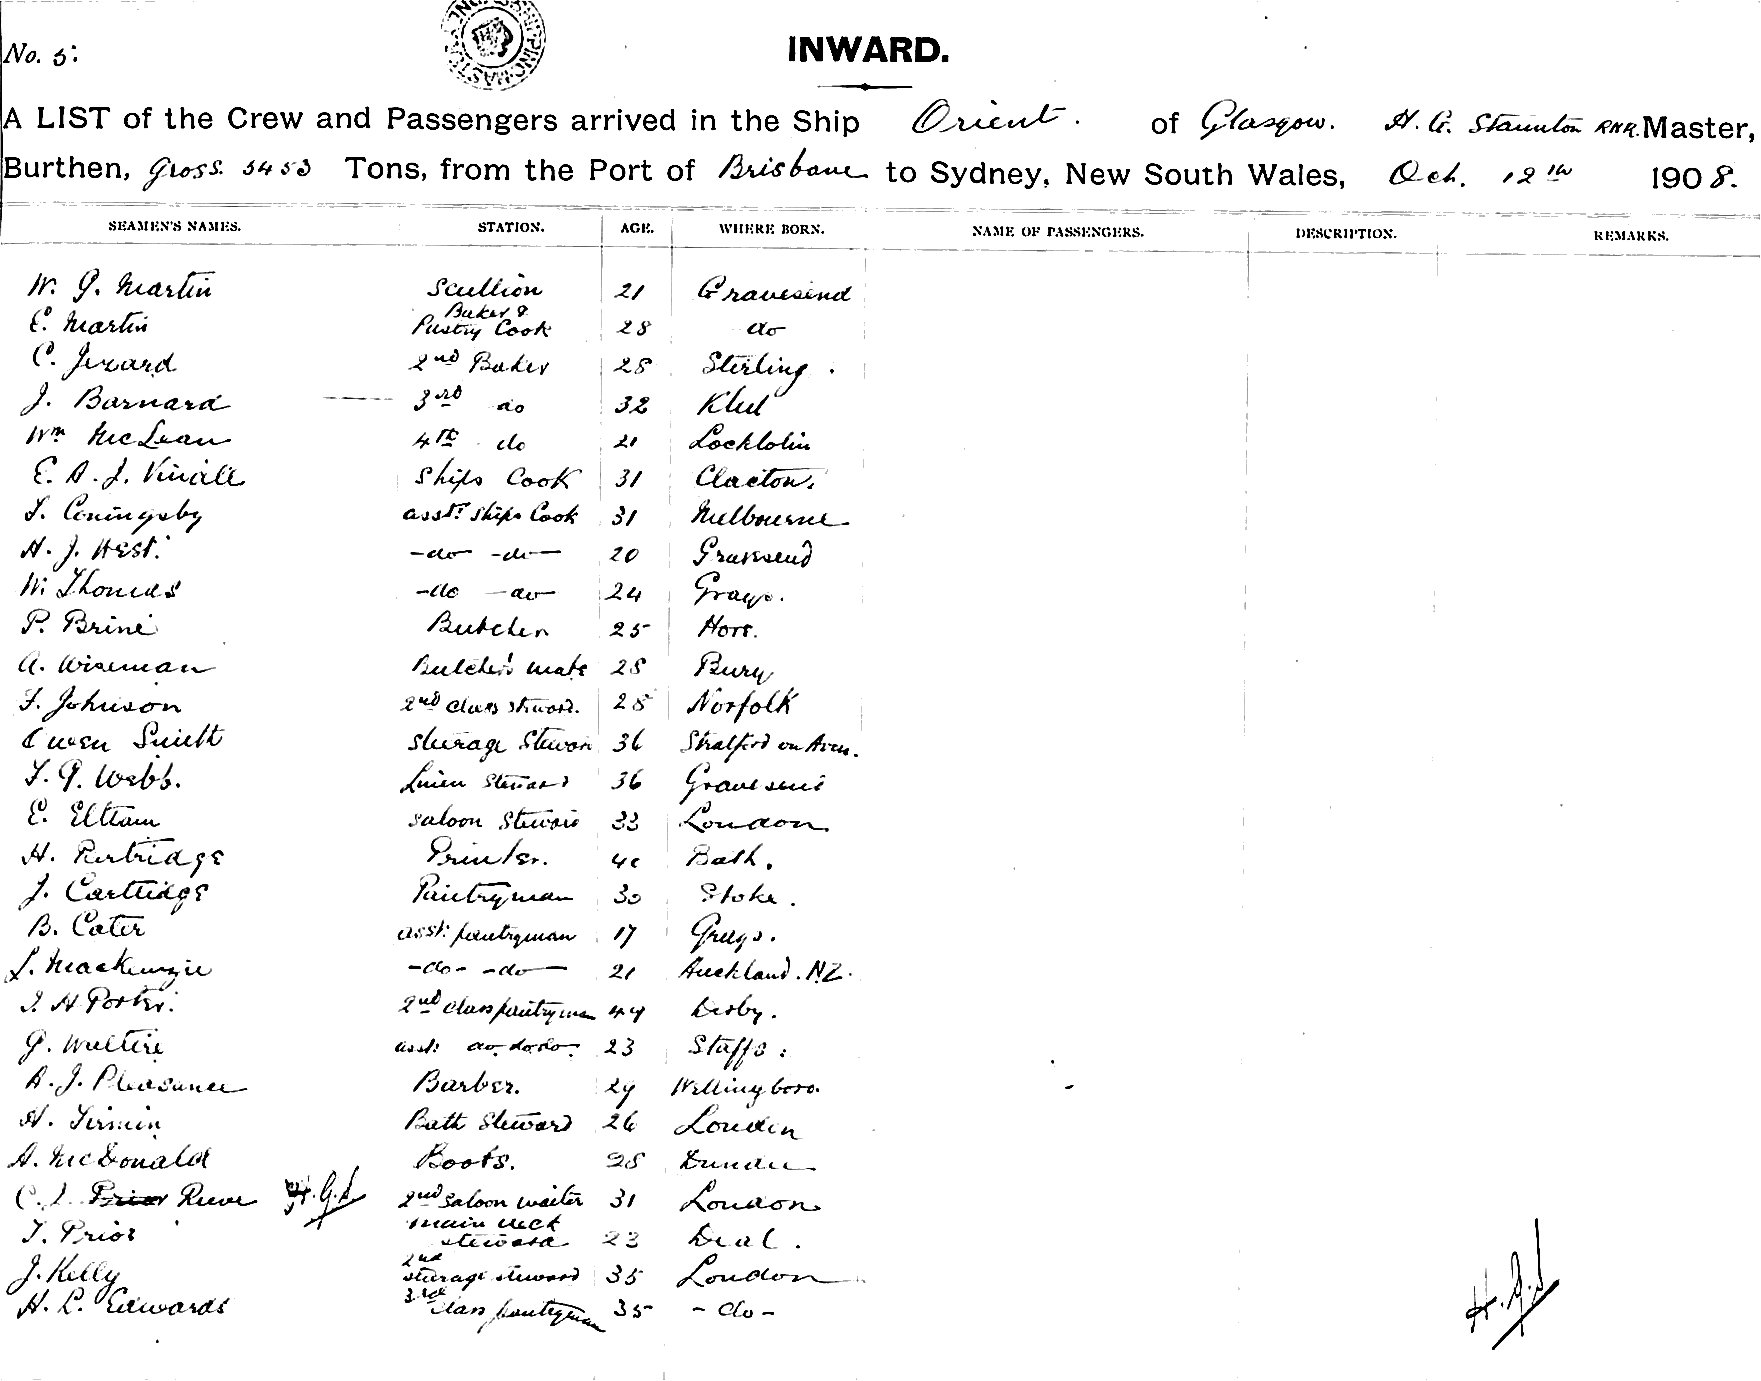 No. 5.
INWARD.
A LIST of the Crew and Passengers arrived in the Ship Orient. of Glasgow. H. G. Staunton RNR. Master,
Burthen, Gross. 5453 Tons, from the Port of Brisbane to Sydney, New South Wales, Oct. 12th 1908.
SEAMEN'S NAMES. STATION. AGE. WHERE BORN. NAME OF PASSENGERS. DESCRIPTION. REMARKS.
W. G. Martin Scullion 21 Gravesend
E. Martin Baker & Pastry Cook 28 do
C. Jezard 2nd Baker 28 Stirling.
J. Barnard 3rd do 32 
Wm McLean 4th do 21 
E. A. J. Vinall Ships Cook 31 Clacton.
F. Coningsby asst. Ships Cook 31 Melbourne
H. J. West. -do- -do- 20 Gravesend
W. Thomas -do -do- 24 Grays.
P. Brine Butcher 25 
A. Wiseman Butchers mate 28 Bury
F. Johnson 2nd Class Steward. 28 Norfolk
Owen Smith Steerage Steward 36 Stratford on Avon.
F. G. Webb. Linen Steward 36 Gravesend
E. Eltham Saloon Steward 33 London.
H. Partridge Printer. 40 Bath.
J. Cartlidge Pantryman 30 Stoke.
B. Cater asst. pantryman 17 Grays.
L. MacKenzie -do- -do- 21 Auckland. N.Z.
J. H Porter. 2nd Class pantryman 44 Derby.
G. asst. do. do. do. 23 Staffs.
A. J. Pleasance Barber. 29 Wellingboro.
H. Firmin Bath Steward 26 London
A. McDonald Boots. 28 Dundee
C. L. Prior Reeve H.G.S 2nd Saloon waiter 31 London
T. Prior main deck steward 23 Deal.
J. Kelly 2nd steerage steward 35 London
H. L. Edwards 3rd Class pantryman 35 -do-
H.G.S